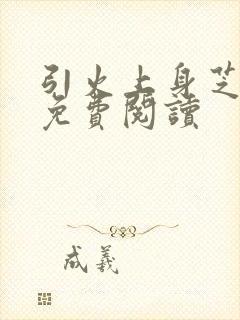 引火上身芝
免費閱讀
成義